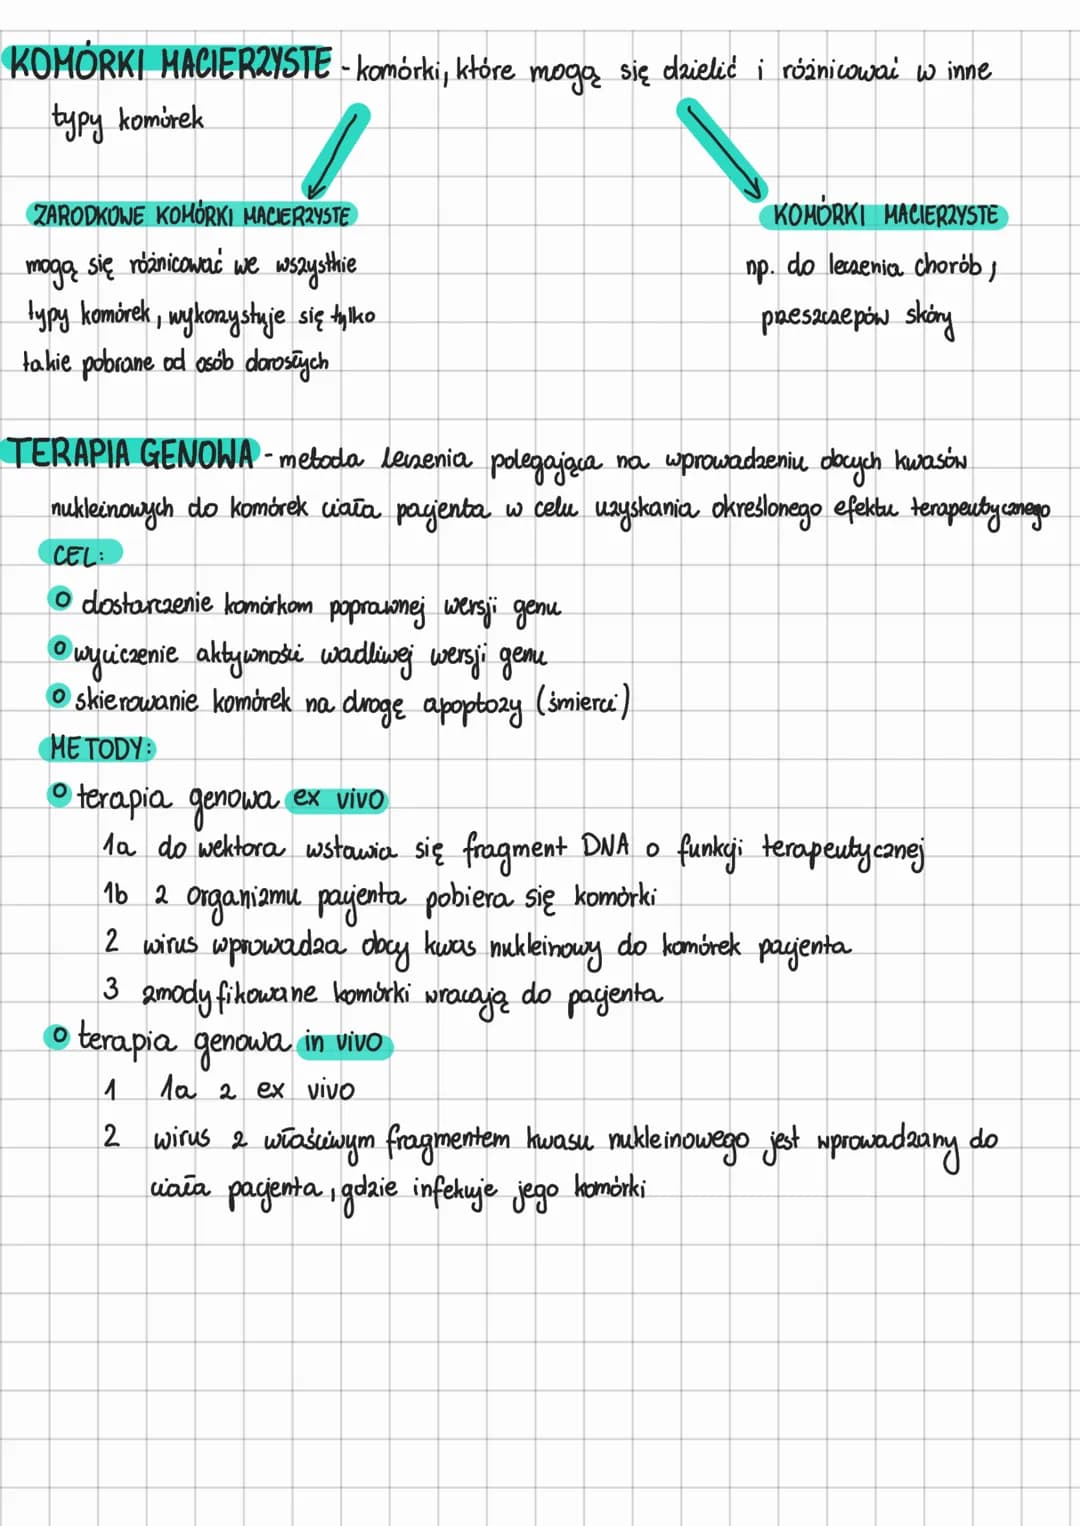 KOMÓRKI MACIERZYSTE - komórki, które mogą się dzielić i różnicować w inne
typy komórek
ZARODKOWE KOMÓRKI MACIERZYSTE
mogą się różnicować we wszystkie
typy komórek, wykorzystuje się tylko
takie pobrane od osób dorosłych
KOMÓRKI MACIERZYSTE
np. do leczenia chorób,
przeszczepów skóry
TERAPIA GENOWA - metoda leczenia polegająca na wprowadzeniu obcych kwasów
nukleinowych do komórek ciała pacjenta w celu uzyskania określonego efektu terapeutycznego
CEL:
o dostarczenie komórkom poprawnej wersji genu
o wyciczenie aktywności wadliwej wersji genu
o skierowanie komórek na drogę apoptozy (śmierci)
METODY:
o terapia genowa ex vivo
1a do wektora wstawia się fragment DNA o funkcji terapeutycznej
1b z organizmu pacjenta pobiera się komórki
2 wirus wprowadza obcy kwas nukleinowy do komórek pacjenta
3 zmodyfikowane komórki wracają do pacjenta
o terapia genowa in vivo
1 1a z ex vivo
2 wirus z właściwym fragmentem kwasu nukleinowego jest wprowadzany do
ciała pacjenta, gdzie infekuje jego komórki